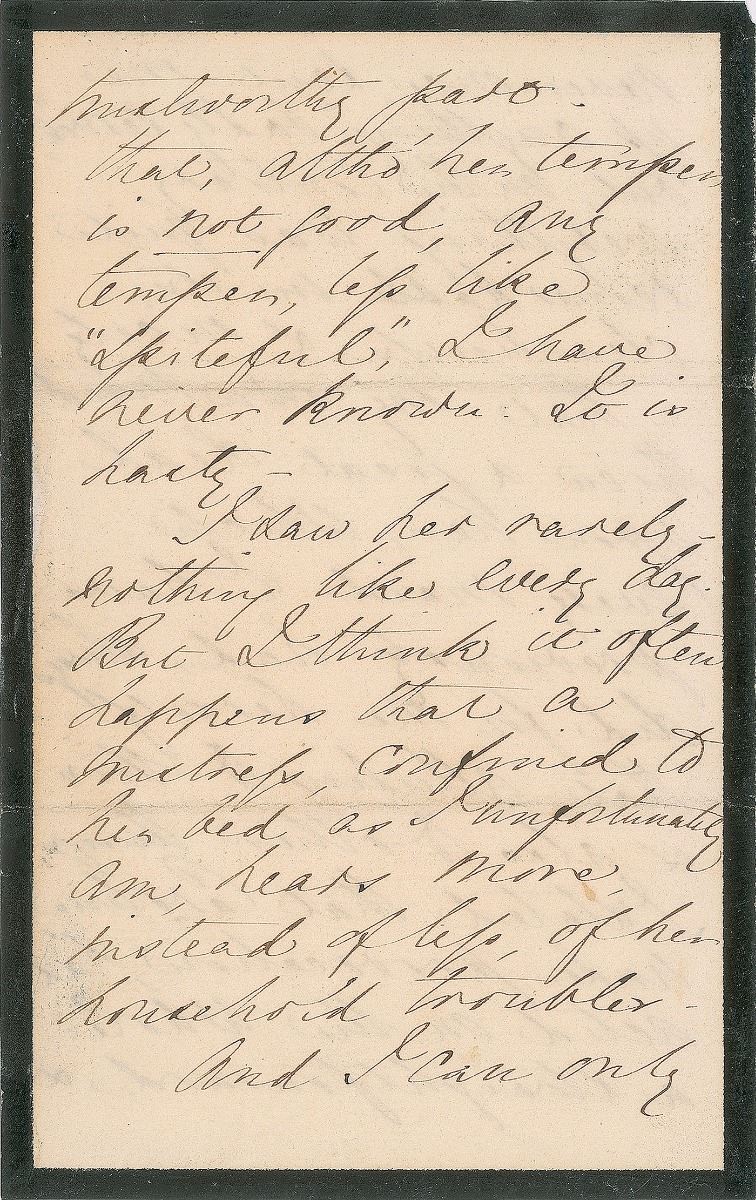 trustworthy part.
that, altho' her temper
is not good, any
temper, less like
"spiteful", I have
never known. It is
hasty -
I saw her rarely -
nothing like every day.
But I think it often
happens that a
mistress, confined to
her bed as I unfortunately
am, hears more,
instead of less, of her
household troubles -
And I can only